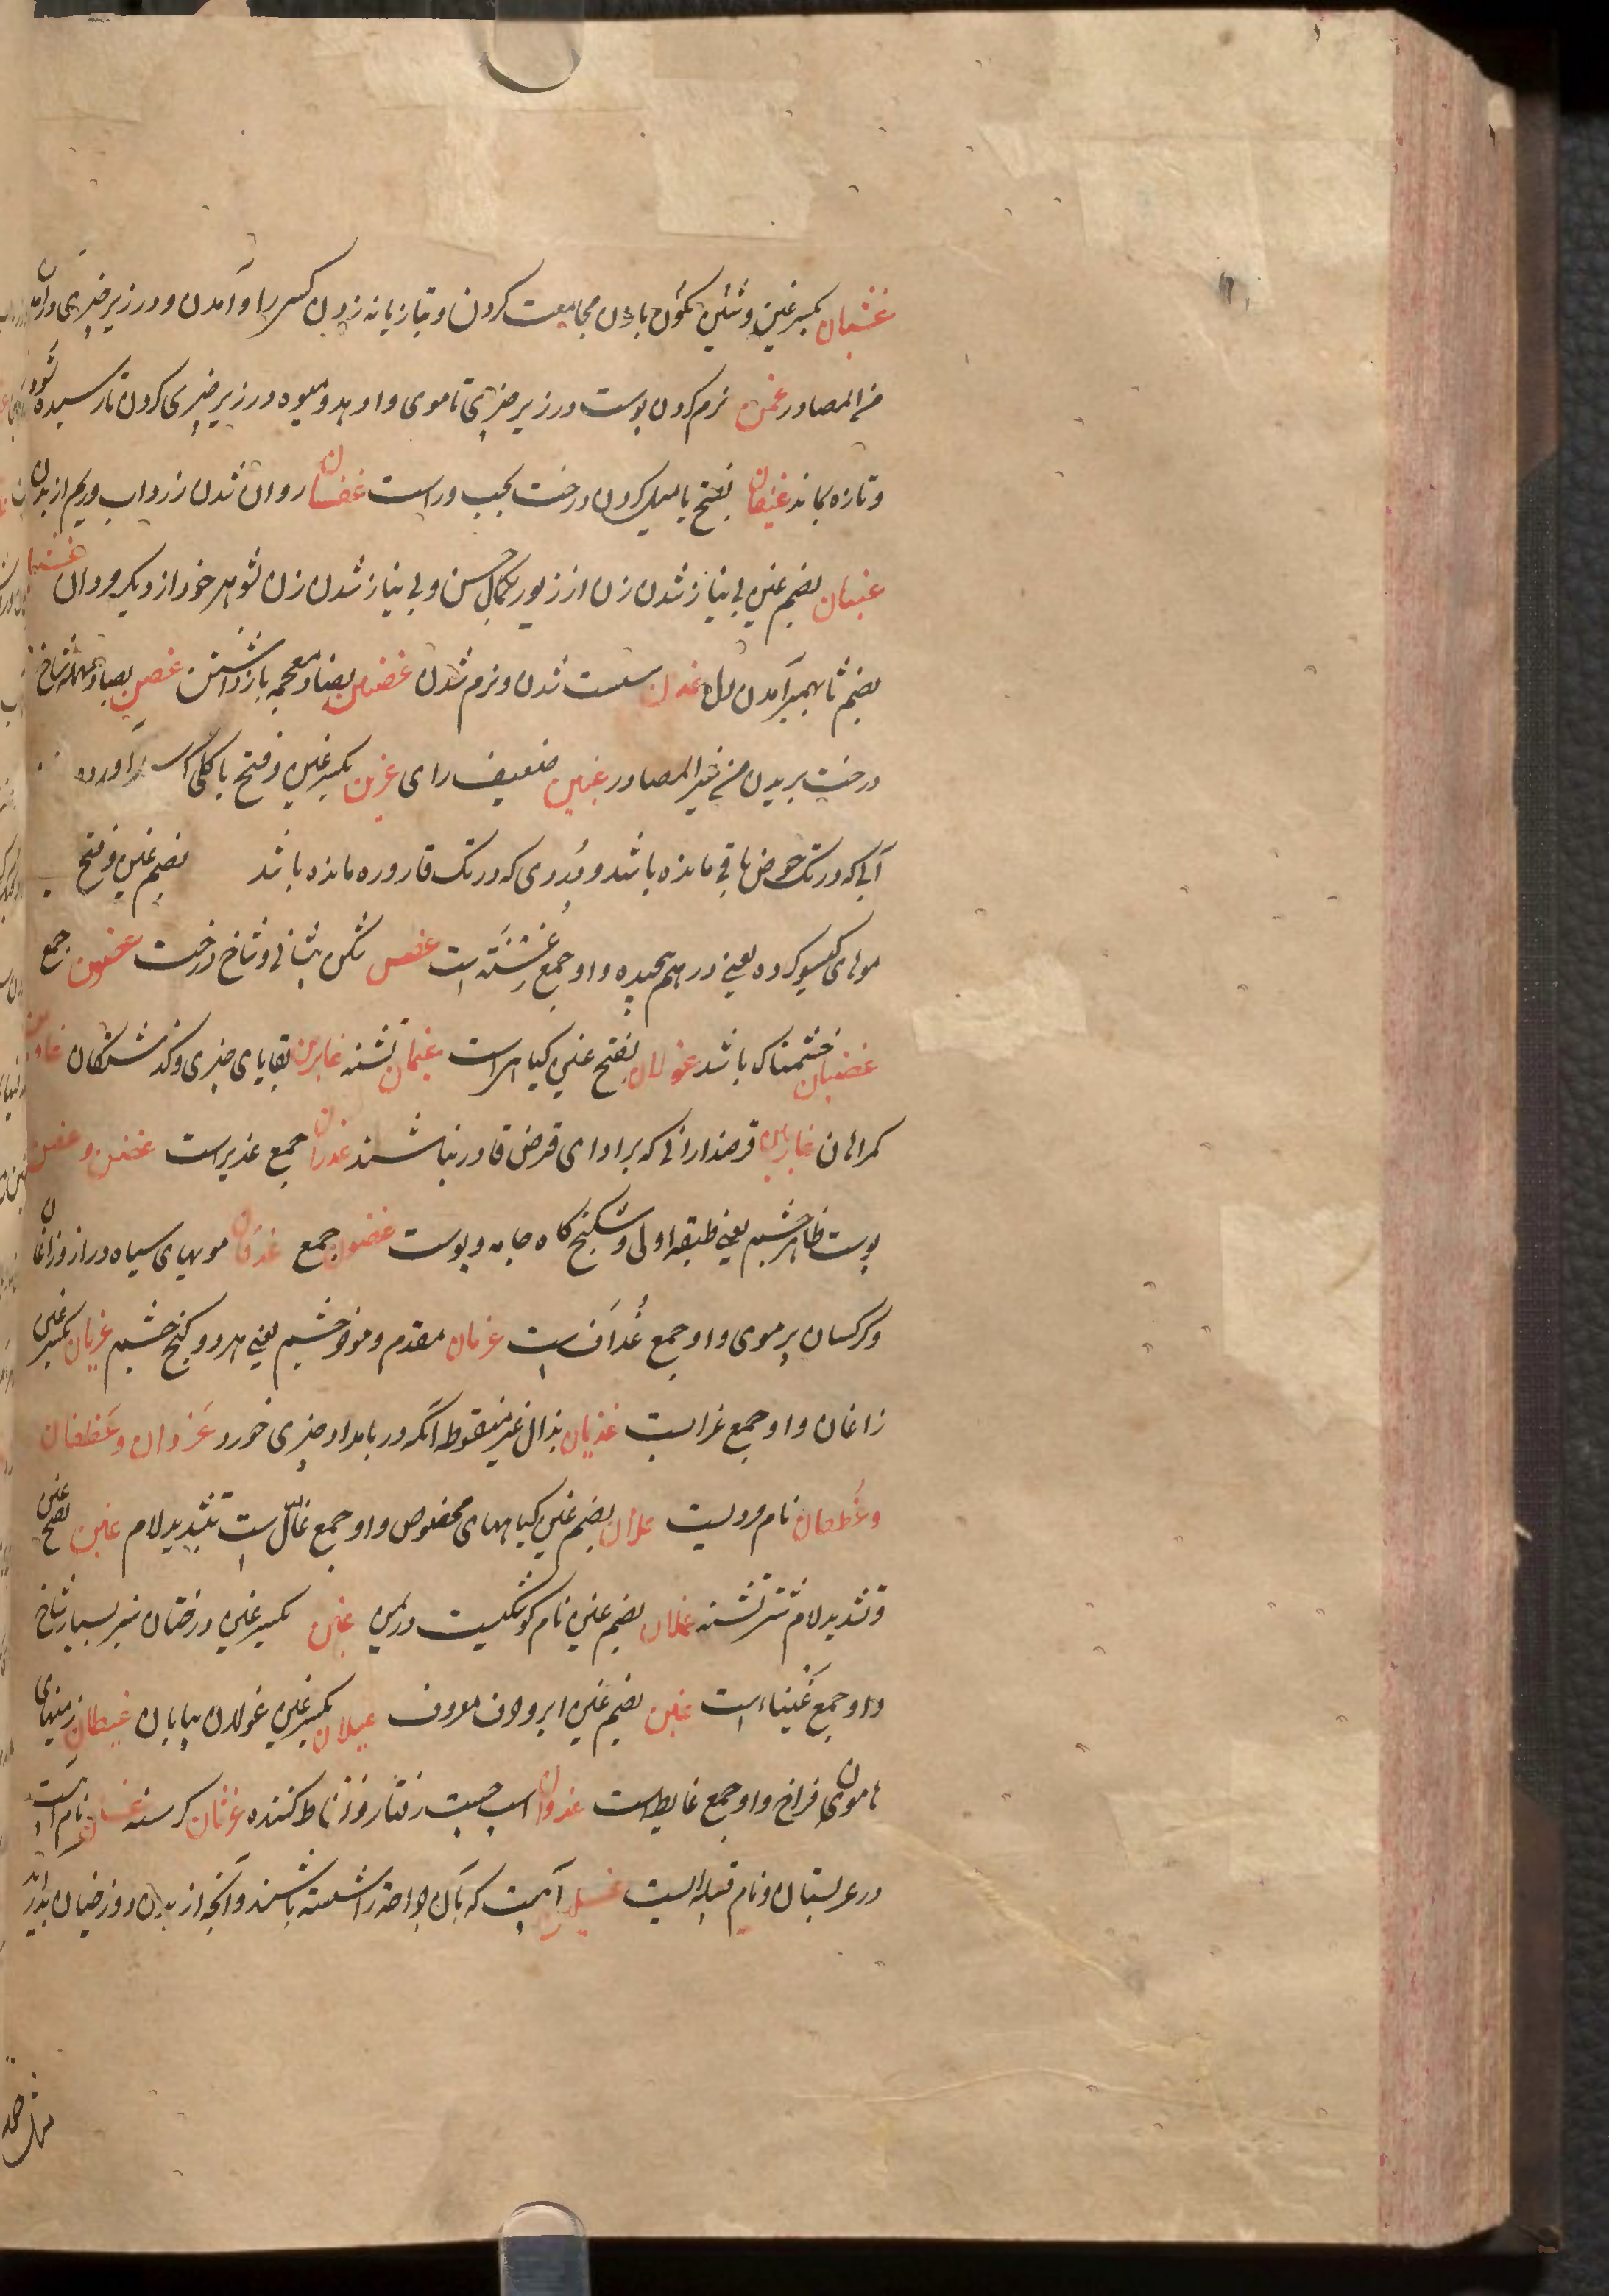 غشیان بکسر غین و شین بسکون با زن مجامعت کردن و تازیانه زدن کسی را و آمدن و در زیر چیزی درآمدن
من المصادر غمن نرم کردن پوست در زیر چیزی تا موی وا دهد و میوه در زیر چیزی کردن تا رسیده شود
و تازه بماند غیضان بفتح یا میل کردن درخت بچپ و راست غضان روان شدن زرداب و ریم از بدن
غنیان بضم غین بی نیاز شدن زن از زیور بکمال حسن و بی نیاز شدن زن بشوهر خود از دیگر مردان غشیان
بضم ثا بهم برآمدن دل غدن سست شدن و نرم شدن غضن بضاد معجمه بازداشتن غصن بصاد مهمله شاخ
درخت بریدن من غیر المصادر غبین ضعیف رای غرین بکسر غین و فتح با گلی که آورده
آبی که در تک حوض باقی مانده باشد و دردی که در تک قاروره مانده باشد بضم غین و فتح
موهای گیسو کرده یعنی در هم پیچیده و او جمع غسنه است غضن شکن پیشانی و شاخ درخت غضون جمع
غضبان خشمناک باشد غولان بفتح غین گیاهی است غیمان تشنه غابرین بقایای چیزی و گذشتگان غاوین
گمراهان غارمین قرضدارانی که بر ادای قرض قادر نباشند غدران جمع غدیر است غضن و غضن
پوست ظاهر چشم یعنی طبقه اولی و شکنج گاه جامه و پوست غضون جمع غدفان مویهای سیاه دراز و زاغان
و کرکسان پر موی و او جمع غداف است غربان مقدم و مؤخر چشم یعنی هر دو کنج چشم غربان بکسر غین
زاغان و او جمع غراب است غدیان بدال غیر منقوطه آنکه در بامداد چیزی خورد غزوان و غطفان
و غطفان نام مردیست غلان بضم غین گیاههای مخصوص و او جمع غال است بتشدید لام غلین بفتح غین
و تشدید لام شتر تشنه غملان بضم غین نام کوشکیست در یمن غین بکسر غین درختان سبز بسیار شاخ
و او جمع غیناء است غین بضم غین ابر و حرف معروف غیلان بکسر غین غولان بیابان غیطان زمینهای
هامون فراخ و او جمع غایط است غدوان اسب چست رفتار و نشاط کننده غرثان گرسنه غسان نام آبیست
در عربستان و نام قبیله ایست غسلین آبیست که بآن جراحت را شسته باشند و آنچه از بدن دوزخیان بدر آید